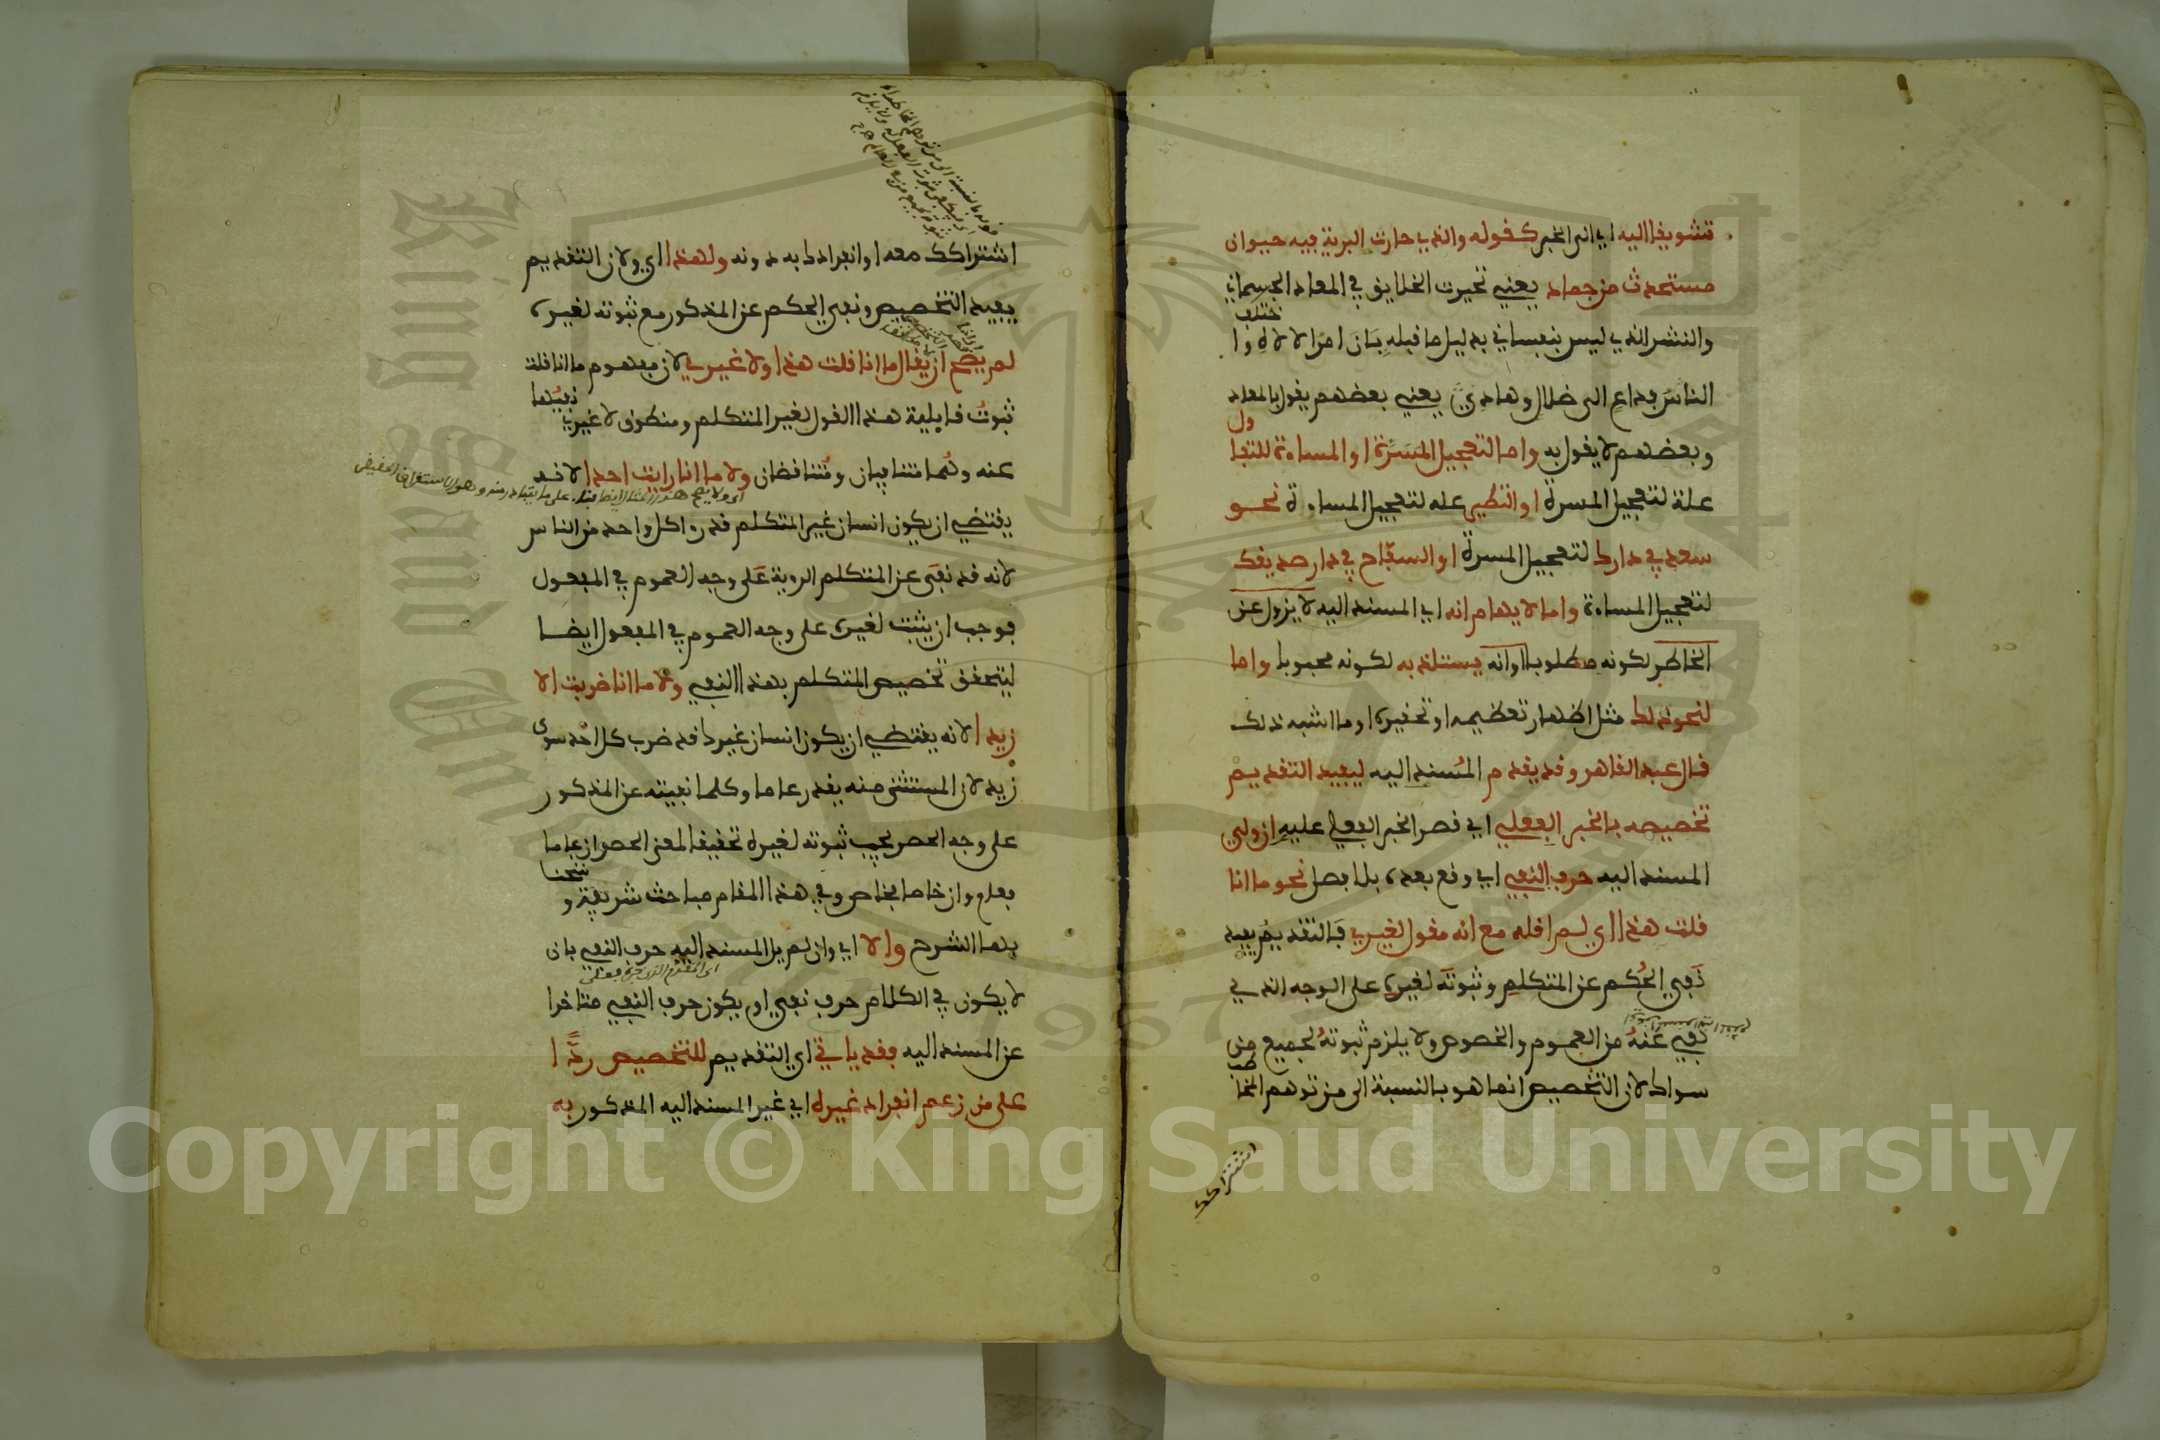 تشويقا اليه اي الى الخبر كقوله والذي حارت البرية فيه حيوان
مستحدث من جماد يعني تحيرت الخلايق في المعاد الجسماني
والنشر الذي ليس بنفساني بدليل ما قبله بَانَ امرُ الالاهِ وا
ختلف
الناسُ فداعٍ الى ضلال وهادي يعني بعضهم يقول بالمعاد
وبعضهم لا يقول به واما التعجيل المَسَرَّة او المساءة للتفا
ول
علة لتعجيل المسرة او التطير علة لتعجيل المساءة نحو
سعد في دارك لتعجيل المسرة او السفّاح في دار صديقك
لتعجيل المساءة واما لايهام انه اي المسند اليه لا يزول عن
الخاطر لكونه مطلوبا او انه يستلذ به لكونه محبوبا واما
لنحو ذلك مثل اظهار تعظيمه او تحقيره او ما اشبه ذلك
قال عبد القاهر وقد يقدم المُسند اليه ليفيد التقديم
تخصيصه بالخبر الفعلي اي قصر الخبر الفعلي عليه ان ولي
المسند اليه حرف النفي اي وقع بعده بلا فصل نحو ما انا
قلت هذا اي لم اقله مع انه مقول لغيري فالتقديم يفيد
نَفي الحُكم عن المتكلم وثبوتَه لغيره على الوجه الذي
نفي عَنهُ من العموم والخصوص ولا يلزم ثبوتهُ لجميع من
سواك لان التخصيص انما هو بالنسبة الى من توهم المخا
طب
اشتراكك
اشتراكك معه او انفرادك به دونه ولهذا اي ولان التقديم
يفيد التخصيص ونفي الحكم عن المذكور مع ثبوته لغيره
لم يصح ان يقال ما انا قلت هذا ولا غيري لان مفهوم ما انا قلت
ثبوتُ قايلية هذا القول لغير المتكلم ومنطوق لا غيري
نفيُها
عنه وهُما متنافيان ومُتناقضان ولا ما انا رايت احدا لانه
يقتضي ان يكون انسان غير المتكلم قد راى كل واحد من الناس
لانه قد نفَى عن المتكلم الروية عَلى وجه العموم في المفعول
فوجب ان يثبت لغيره على وجه العموم في المفعول ايضا
ليتحقق تخصيص المتكلم بهذا النفي ولا ما انا ضربت الا
زيدا لانه يقتضي ان يكون انسان غيرك قد ضرب كل احد سوى
زيد لان المستثنى منه يقدر عاما وكلما نفيته عن المذكور
على وجه الحصر يجب ثبوته لغيره تحقيقا لمعنى الحصر ان عاما
فعام وان خاصا فخاص وفي هذا المقام مباحث شريفة و
شحنا
بها الشرح والا اي وان لم يل المسند اليه حرف النفي بان
لا يكون في الكلام حرف نفي او يكون حرف النفي متاخرا
عن المسند اليه فقد ياتي اي التقديم للتخصيص ردًّا
على من زعم انفراد غيره اي غير المسند اليه المذكور به